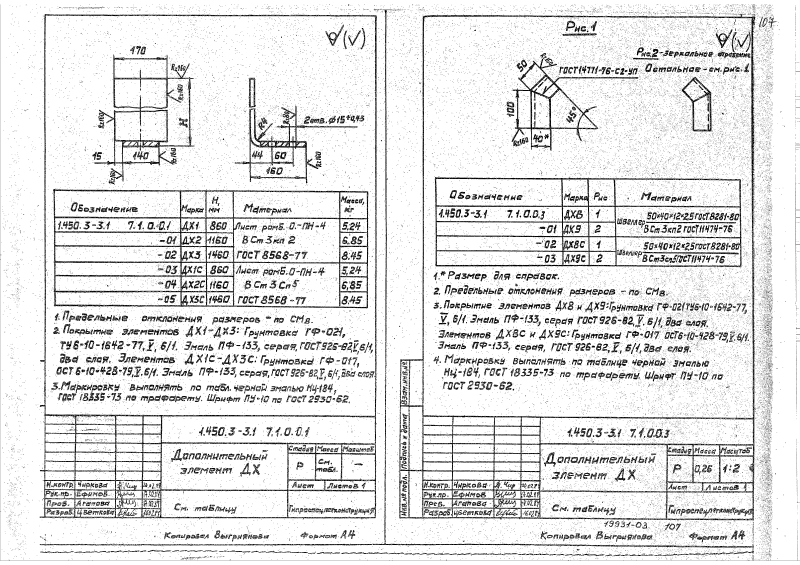 104
√(√)
170
Rz160
Rz160
H
Rz160
15
140
Rz160
Rz160
R4
Rz80
2отв. Ф15+0,43
44
60
160
Rz160
Обозначение Марка H, мм Материал Масса, кг
1.450.3-3.1 7.1.0.0.1 ДХ1 860 Лист ромб.О-ПН-4 5,24
-01 ДХ2 1160 ВСт3кп2 6,85
-02 ДХ3 1460 ГОСТ 8568-77 8.45
-03 ДХ1С 860 Лист ромб.О-ПН-4 5,24
-04 ДХ2С 1160 ВСт3сп5 6,85
-05 ДХ3С 1460 ГОСТ 8568-77 8.45
1. Предельные отклонения размеров - по СМ8.
2. Покрытие элементов ДХ1-ДХ3: Грунтовка ГФ-021,
ТУ6-10-1642-77, V, 6/1. Эмаль ПФ-133, серая, ГОСТ926-82, V, 6/1,
два слоя. Элементов ДХ1С-ДХ3С: Грунтовка ГФ-017,
ОСТ 6-10-428-79, V, 6/1. Эмаль ПФ-133, серая, ГОСТ926-82, V, 6/1, два слоя.
3. Маркировку выполнять по табл. черной эмалью НЦ-184,
ГОСТ 18335-73 по трафарету. Шрифт ПУ-10 по ГОСТ 2930-62.
1.450.3-3.1 7.1.0.0.1
Дополнительный
элемент ДХ
Стадия Масса Масштаб
Р См. табл. —
Лист Листов 1
Н.контр. Чиркова
Рук.пр. Ефимов
Пров. Агапова
Разраб. Цветкова
См. таблицу
Гипроспецлегконструкция
Копировал Выгриянова Формат А4
Рис.1
√(√)
Рис.2-зеркальное отражение
Остальное-см.рис.1
50
Rz160
ГОСТ 14771-76-С2-УП
100
45°
Rz160
40*
Обозначение Марка Рис Материал
1.450.3-3.1 7.1.0.0.3 ДХ8 1 Швеллер 50×40×12×2,5 ГОСТ 8281-80
-01 ДХ9 2 ВСт3кп2 ГОСТ 11474-76
-02 ДХ8С 1 Швеллер 50×40×12×2,5 ГОСТ 8281-80
-03 ДХ9С 2 ВСт3сп5 ГОСТ 11474-76
1.* Размер для справок.
2. Предельные отклонения размеров - по СМ8.
3. Покрытие элементов ДХ8 и ДХ9: Грунтовка ГФ-021 ТУ6-10-1642-77,
V, 6/1. Эмаль ПФ-133, серая ГОСТ 926-82, V, 6/1, два слоя.
Элементов ДХ8С и ДХ9С: Грунтовка ГФ-017 ОСТ6-10-428-79, V, 6/1.
Эмаль ПФ-133, серая, ГОСТ 926-82, V, 6/1, два слоя.
4. Маркировку выполнять по таблице черной эмалью
НЦ-184, ГОСТ 18335-73 по трафарету. Шрифт ПУ-10 по
ГОСТ 2930-62.
Взам.инв.№
Подпись и дата
Инв.№ подл.
1.450.3-3.1 7.1.0.0.3
Дополнительный
элемент ДХ
Стадия Масса Масштаб
Р 0,26 1:2
Лист Листов 1
Н.контр. Чиркова
Рук.пр. Ефимов
Пров. Агапова
Разраб. Цветкова
См. таблицу
Гипроспецлегконструкция
19931-03 107
Копировал Выгриянова Формат А4